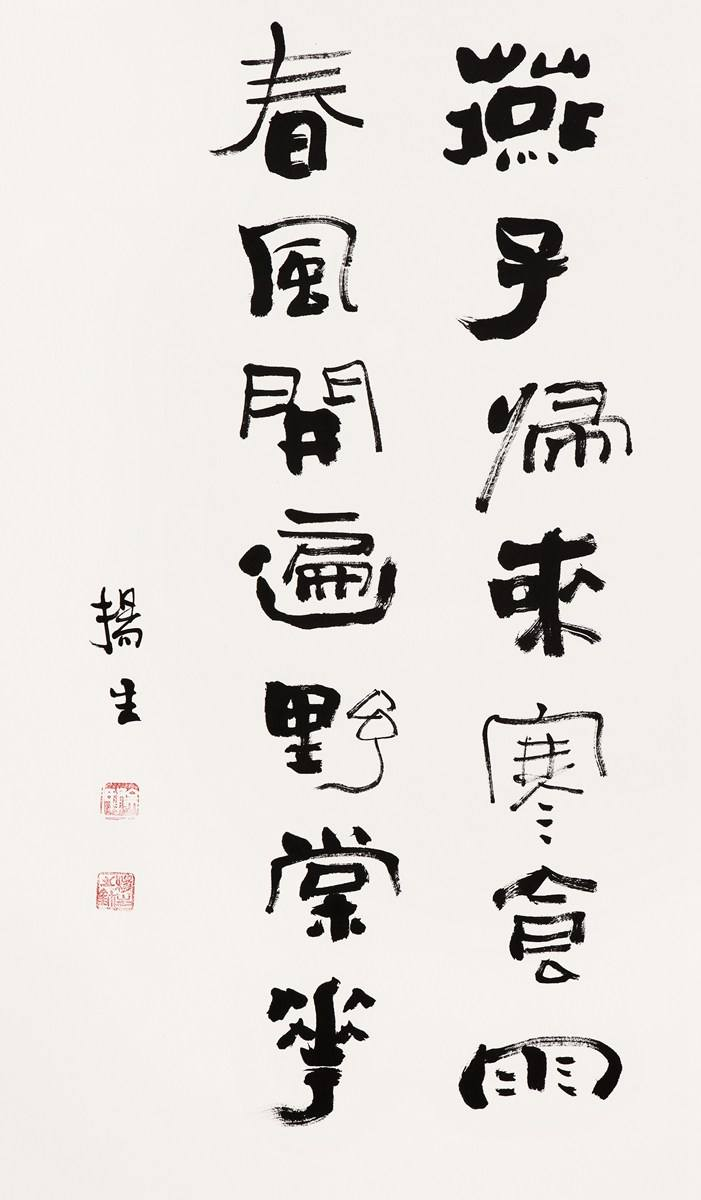 燕子帰來寒食雨
春風開遍野棠華
揚生